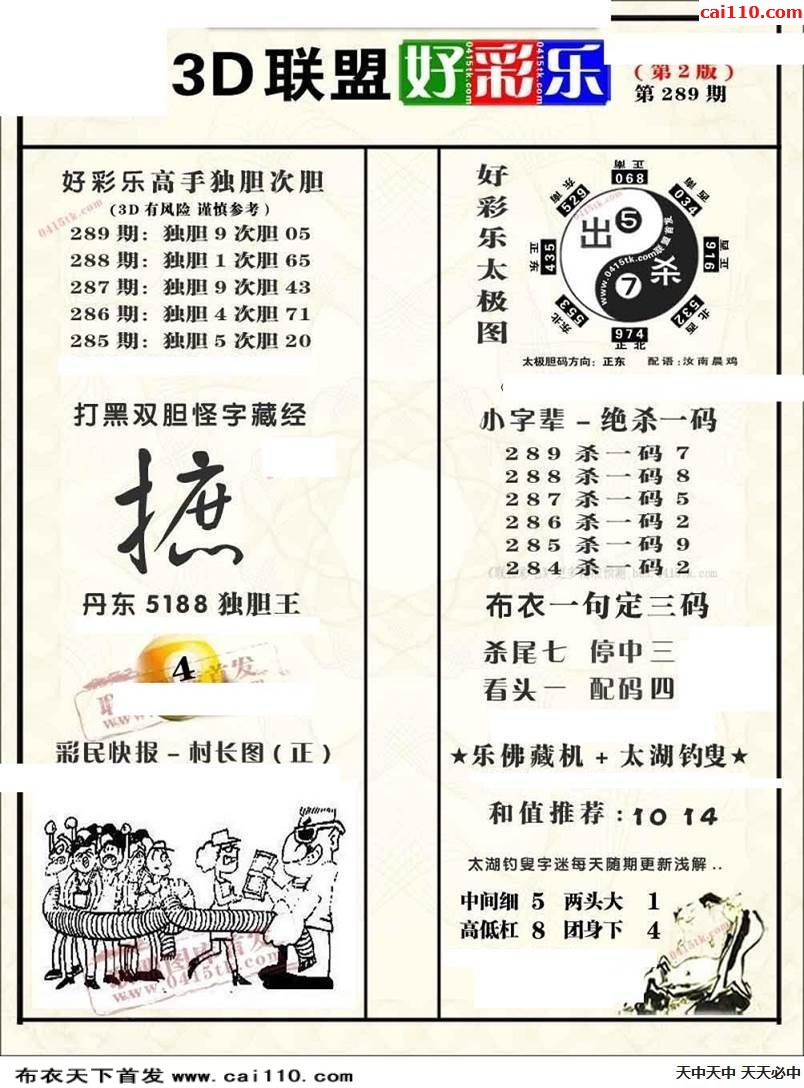 cai110.com
3D 联盟 好彩乐
0415tk.com 0415tk.com 0415tk.com
(第2版)
第289期
好彩乐高手独胆次胆
(3D有风险 谨慎参考)
0415tk.com
289 期: 独胆 9 次胆 05
288 期: 独胆 1 次胆 65
287 期: 独胆 9 次胆 43
286 期: 独胆 4 次胆 71
285 期: 独胆 5 次胆 20
打黑双胆怪字藏经
摭
丹东 5188 独胆王
4
彩民快报 - 村长图 (正)
www.0415tk.com
好彩乐太极图
正南
068
东南
529
西南
034
正东
435
正西
916
东北
553
西北
532
974
正北
出 5
7 杀
www.0415tk.com联盟首发
0415tk.com
太极胆码方向: 正东 配语: 汝南晨鸡
小字辈 - 绝杀一码
289 杀一码 7
288 杀一码 8
287 杀一码 5
286 杀一码 2
285 杀一码 9
284 杀一码 2
布衣一句定三码
杀尾七 停中三
看头一 配码四
★乐佛藏机 + 太湖钓叟★
和值推荐 : 10 14
太湖钓叟字迷每天随期更新浅解 ..
中间细 5 两头大 1
高低杠 8 团身下 4
布衣天下首发 www.cai110.com
天中天中 天天必中